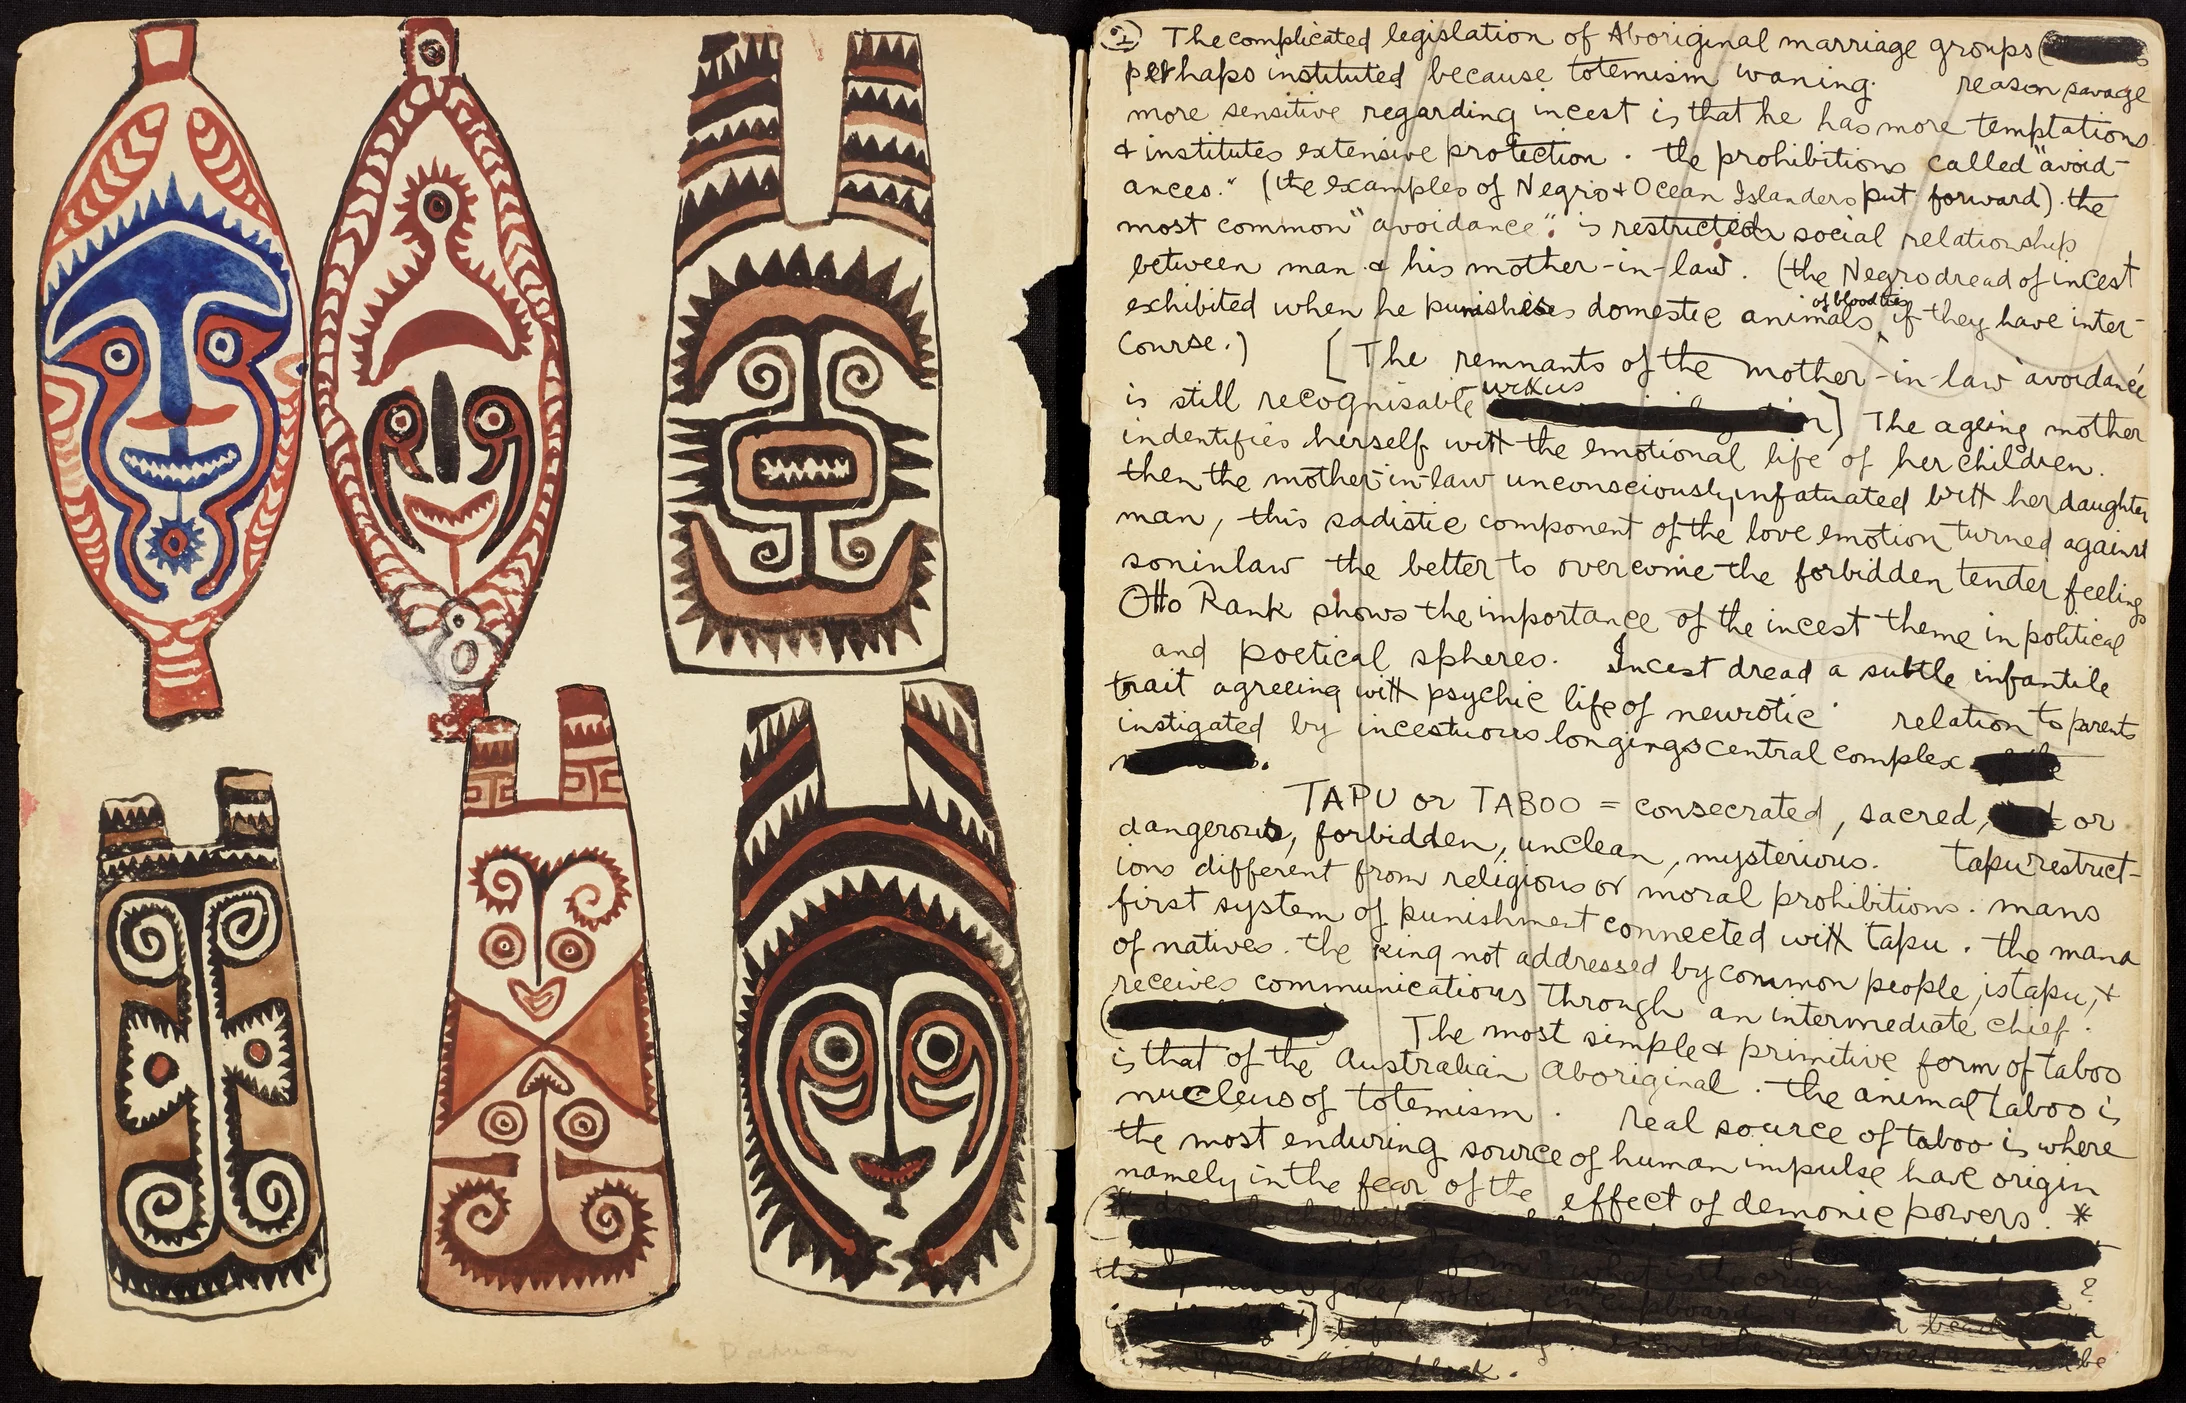 The complicated legislation of Aboriginal marriage groups (
perhaps instituted because totemism waning. reason savage
more sensitive regarding incest is that he has more temptations
& institutes extensive protection. the prohibitions called "avoid-
ances." (the examples of Negro & Ocean Islanders put forward). the
most common "avoidance" is restricted social relationship
between man & his mother-in-law. (the Negro dread of incest
exhibited when he punishes domestic animals of blood ties if they have inter-
course.) [The remnants of the mother-in-law avoidance
is still recognisable ] The ageing mother
indentifies herself with the emotional life of her children.
then the mother-in-law unconsciously infatuated with her daughter
man, this sadistic component of the love emotion turned against
soninlaw the better to overcome the forbidden tender feelings
Otto Rank shows the importance of the incest theme in political
and poetical spheres. Incest dread a subtle infantile
trait agreeing with psychic life of neurotic relation to parents
instigated by incestuous longings central complex
TAPU or TABOO = consecrated, sacred, or
dangerous, forbidden, unclean, mysterious. tapu restrict-
ions different from religious or moral prohibitions. mans
first system of punishment connected with tapu. the mana
of natives. the king not addressed by common people, is tapu, &
receives communications through an intermediate chief.
( The most simple & primitive form of taboo
is that of the Australian Aboriginal. the animal taboo is
nucleus of totemism. real source of taboo is where
the most enduring source of human impulse have origin
namely in the fear of the effect of demonic powers. *